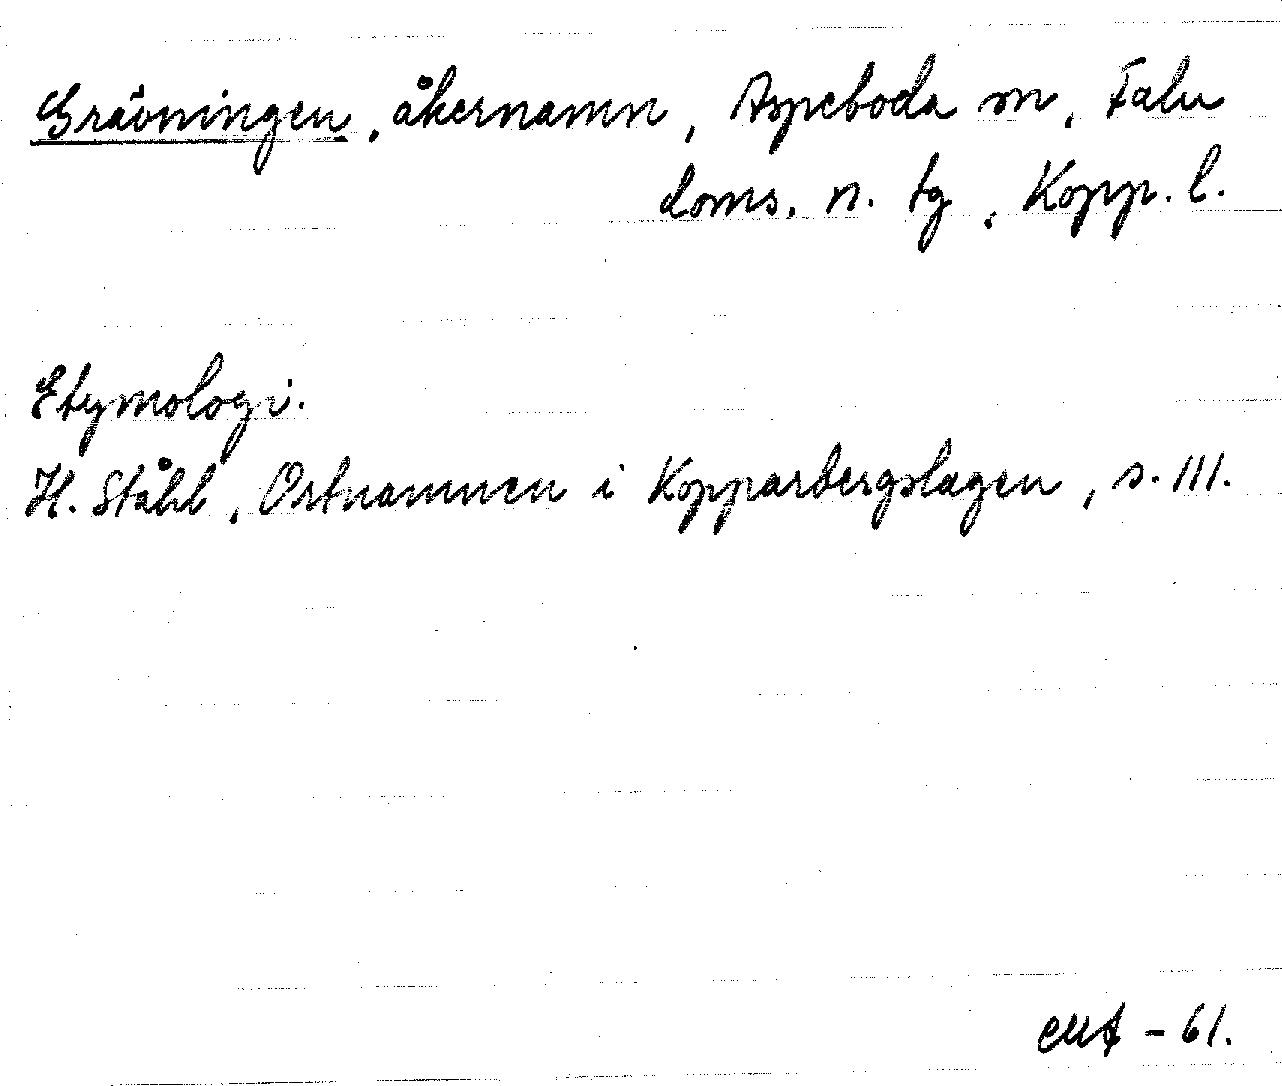 Grävningen, åkernamn, Aspeboda sn, Falu
doms. n. tg, Kopp. l.
Etymologi.
H. Ståhl, Ortnamnen i Kopparbergslagen, s. 111.
-61.